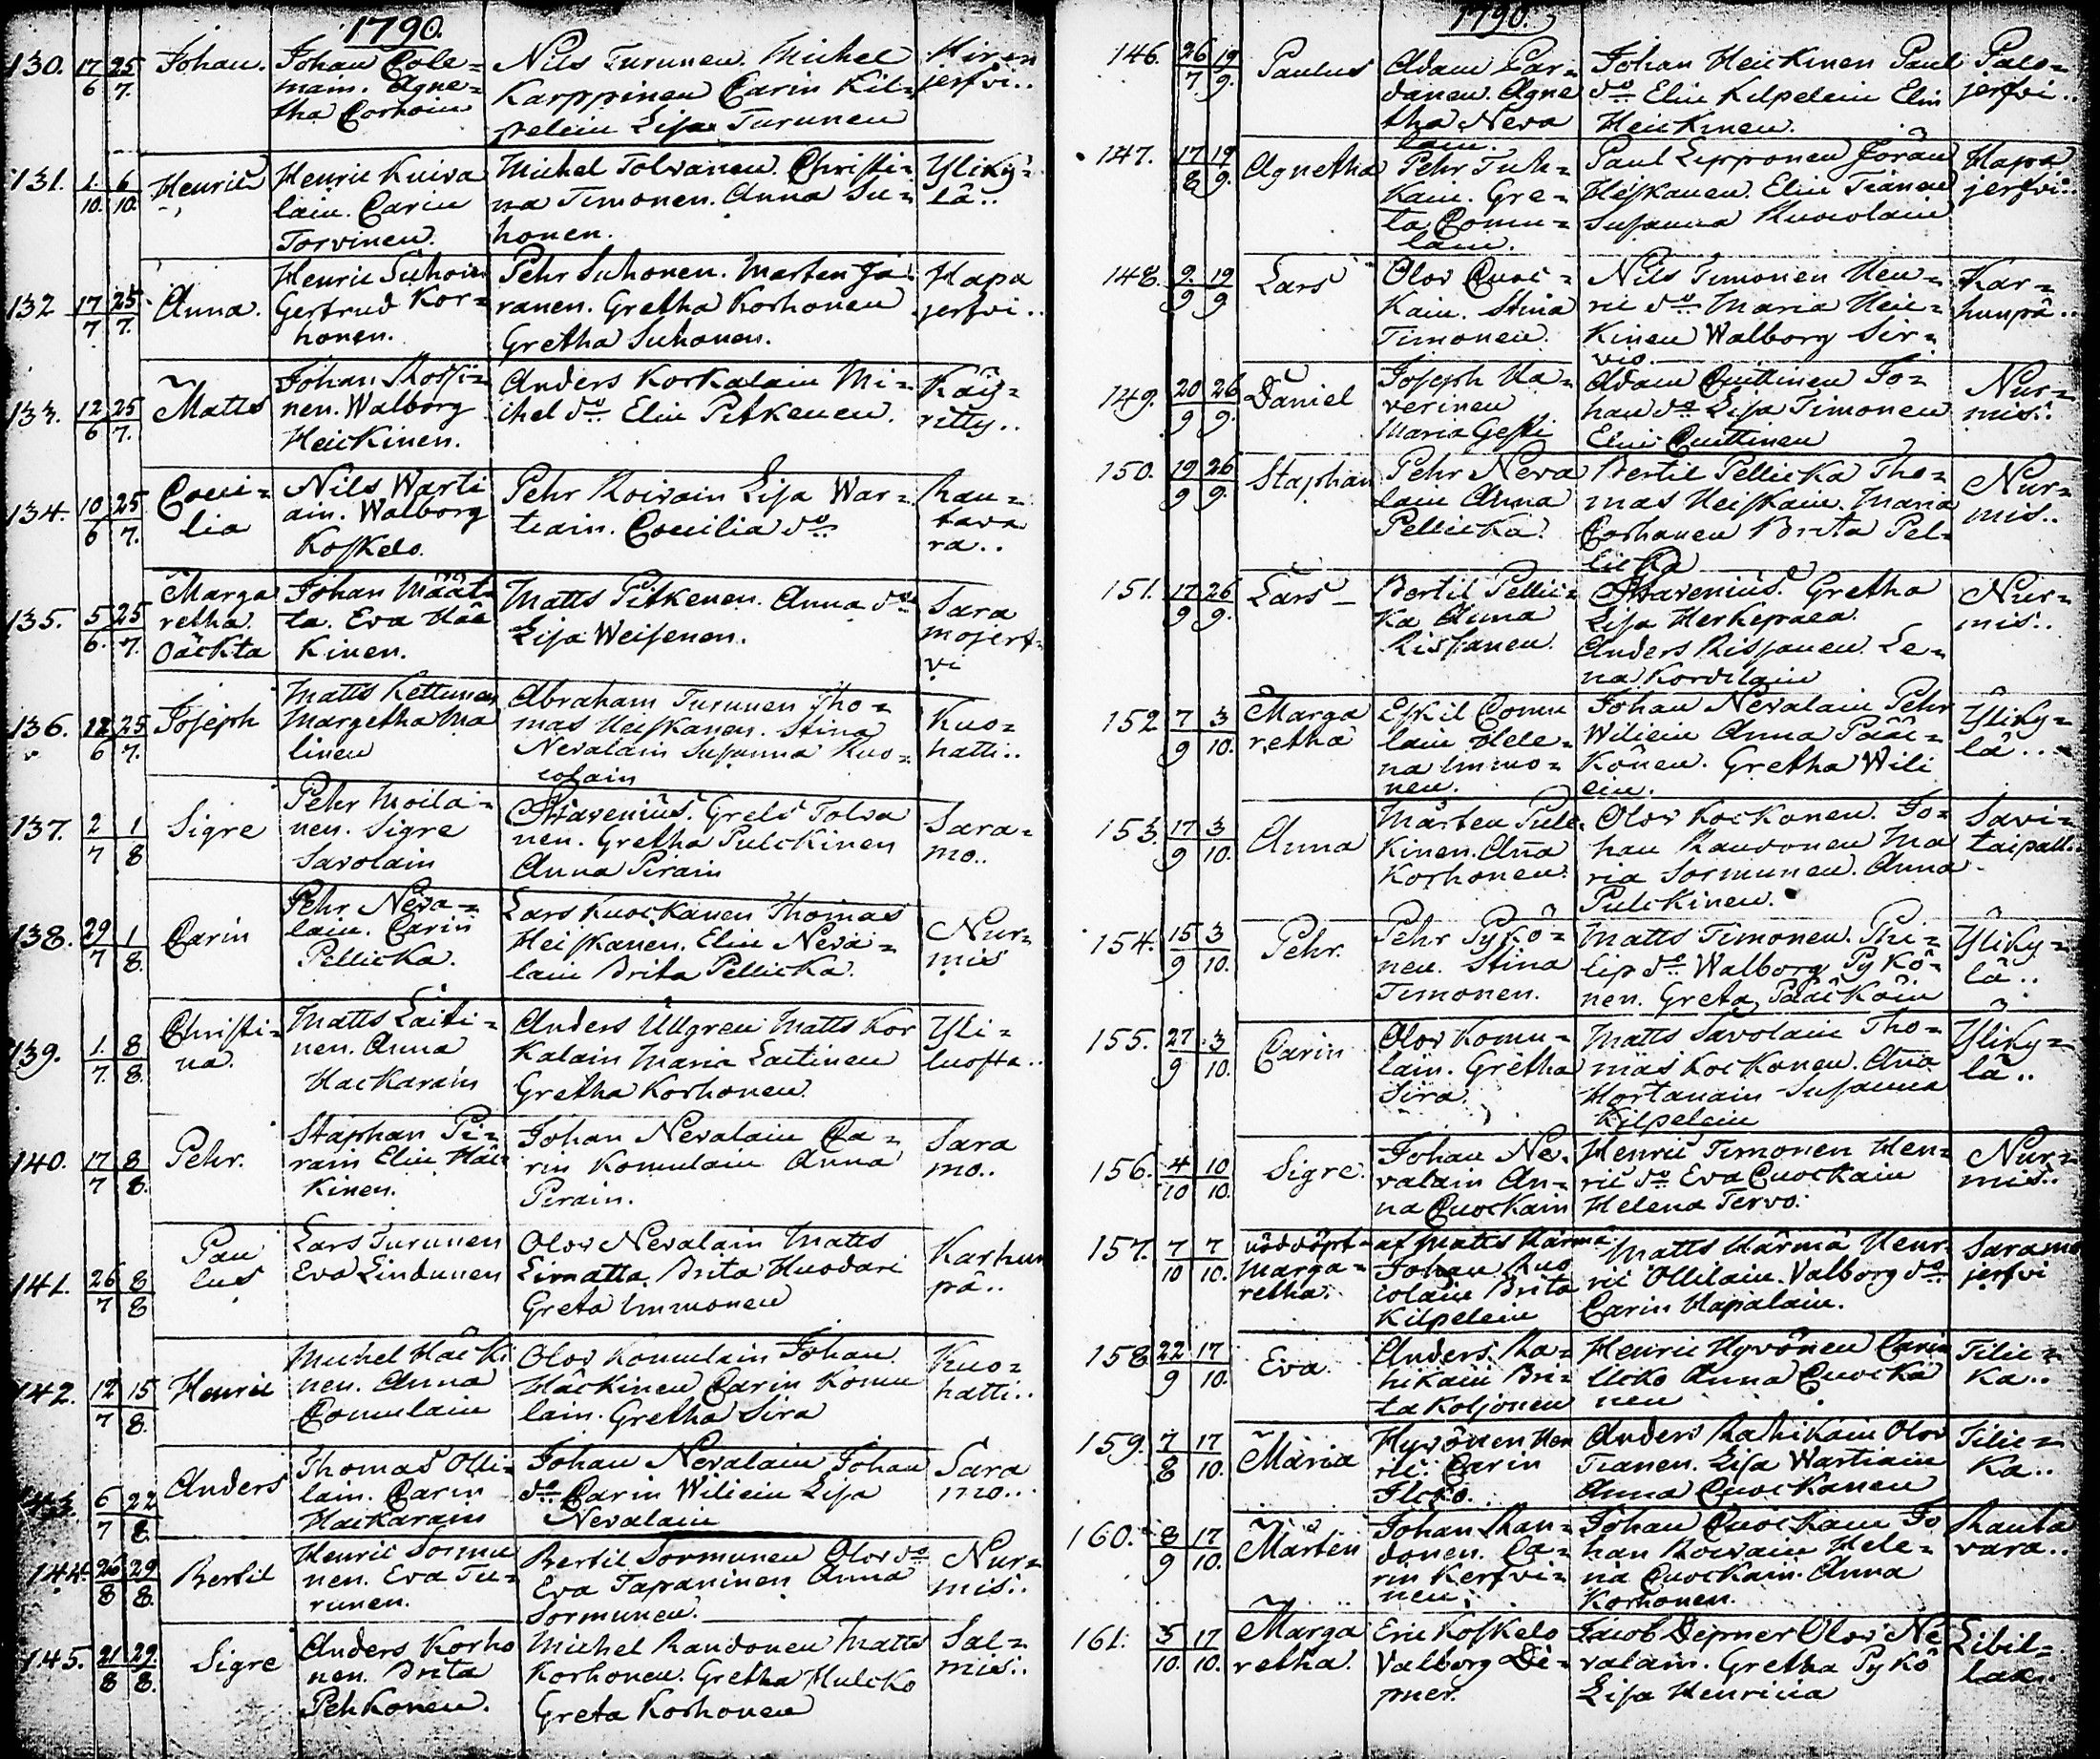 1790.
130. 17/6 25/7. Johan. Johan Cole=
main. Agne=
tha Corhoin
Nils Turunen. Michel
Karppinen Carin Kil=
pelein Lisa Turunen
jerfvi..
131. 1./10. 6/10. Henric Henric Kuiva
lain. Carin
Torvinen.
Michel Tolvanen. Christi=
na Timonen. Anna Su=
honen.
Yliky=
lä..
132 17/7 25/7. Anna. Henric Suhoin
Gertrud Kor=
honen.
Pehr Suhonen. Marten
ranen. Gretha Korhonen
Gretha Suhonen.
Hapa
jerfvi..
133. 12/6 25/7. Matts Johan
nen. Walborg
Heickinen.
Anders Korkalain Mi=
chel do Elin Pitkenen.
Käy=
ritty..
134. 10/6 25/7. Coeci=
lia
Nils Warti
ain. Walborg
Koskelo.
Pehr Roivain Lisa War=
tiain. Coecilia do
Rau=
tava
ra..
135. 5/6. 25/7. Marga
retha
oäckta
Johan Määt
ta. Eva Häc
kinen.
Matts Pitkenen. Anna do
Lisa Weisenen.
Sara
mojerf=
vi
136. 12/6 25/7. Joseph Matts Kettunen
Margetha Ma
linen
Abraham Turunen Tho=
mas Heiskanen. Stina
Nevalain Susanna Ruo=
colain
Kuo=
hatti..
137. 2/7 1/8 Sigre Pehr Moila=
nen. Sigre
Savolain
Stavenius. Grels Tolva
nen. Gretha Pulckinen
Anna Pirain
Sara=
mo..
138. 29/7 1/8. Carin Pehr Neva=
lain. Carin
Pellicka.
Lars Kuockanen Thomas
Heiskanen. Elin Neva=
lain Brita Pellicka.
Nur=
mis
139. 1./7. 8/8. Christi=
na.
Matts Laiti=
nen. Anna
Hackarain
Anders Ullgren Matts Kor
kalain Maria Laitinen
Gretha Korhonen.
Yli=
luosta..
140. 17/7 8/8. Pehr. Staphan Pi=
rain Elin Häc
kinen.
Johan Nevalain Ca=
rin Komulain Anna
Pirain.
Sara
mo..
141. 26/7 8/8 Pau
lus
Lars Turunen
Eva Lindunen
Olov Nevalain Matts
Limatta. Brita Huovari
Greta Immonen
Karhun
pä..
142. 12/7 15/8. Henric Michel Häcki
nen. Anna
Comulain
Olov Komulain Johan
Häckinen Carin Komu
lain. Gretha Sira
Kuo=
hatti..
143. 6/7 22/8. Anders Thomas Olli=
lain. Carin
Hackarain
Johan Nevalain Johan
do Carin Wiliein Lisa
Nevalain
Sara
mo..
144. 26/8 29/8. Bertil Henric Sormu
nen. Eva Tu=
runen.
Bertil Sormunen Olov do
Eva Tapaninen Anna
Sormunen.
Nur=
mis..
145. 21/8 29./8. Sigre Anders Korho
nen. Brita
Pehkonen.
Michel Raudonen Matts
Korhonen. Gretha Mulcko
Greta Korhonen
Sal=
mis..
1790.
146. 26/7 19/9. Paulus Adam Par=
danen. Agne
tha Neva
lain.
Johan Heickinen Paul
do Elin Kilpelein Elin
Heickinen.
Palo=
jerfvi..
147. 17/8 19/9. Agnetha Pehr Tuh=
kain. Gre=
ta Comu=
lain.
Paul Lipponen Jöran
Heiskanen. Elin Tianen
Susanna Ruocolain
Hapa
jerfvi..
148. 9./9 19/9 Lars Olov Quoc=
kain. Stina
Timonen.
Nils Timonen Hen=
ric do Maria Heic=
kinen Walborg Ser=
vio.
Kar=
hunpä..
149. 20/9 26/9. Daniel Joseph Ha=
verinen
Maria Gessi
Adam Quittinen Jo=
han do Lisa Timonen
Elin Quittinen
Nur=
mis..
150. 19/9 26/9. Staphan Pehr Neva
lain Anna
Pellicka.
Bertil Pellicka Tho=
mas Heiskain. Maria
Corhonen Brita Pel=
licka
Nur=
mis..
151. 17/9 26/9. Lars Bertil Pellic=
ka Anna
Risjanen.
Stavenius. Gretha
Lisa Herkepaea.
Anders Risjanen. Le=
na Kordilain
Nur=
mis..
152 7/9 3/10. Marga
retha
Eskil Comu
lain Hele=
na Immo=
nen.
Johan Nevalain Pehr
Wiliein Anna Pääc=
könen. Gretha Wili
ein.
Yliky=
lä..
153. 17/9 3/10. Anna Mårten Pulc
kinen. Anna
Korhonen.
Olov Kockonen. Jo=
han Raudonen Ma
ria Sormunen. Anna
Pulckinen.
Savi=
taipall..
154. 15/9 3/10. Pehr. Pehr Pykö=
nen. Stina
Timonen.
Matts Timonen. Phi=
lip do Walborg Pykö=
nen. Greta Pääcköin
Yliky=
lä..
155. 27/9 3/10. Carin Olov Komu=
lain. Gretha
Sira
Matts Savolain Tho=
mas Kockonen. Anna
Hortanain Susanna
Kilpelein
Yliky=
lä..
156. 4/10 10/10. Sigre. Johan Ne=
valain An=
na Quockain
Henric Timonen Hen=
ric do Eva Quockain
Helena Tervo.
Nur=
mis..
157. 7/10 7/10. nöddöpt
Marga=
retha.
af Matts Härmä
Johan Ruo
colain Brita
Kilpelein
Matts Härmä Hen=
ric Ollilain. Valborg do
Carin Hapalain.
Saramo
jerfvi
158 22/9 17/10. Eva Anders Ra=
hikain Bri=
ta Koljonen
Henric Hyvönen Carin
Ilcko Anna Quocka
nen
Tilic=
ka..
159. 7/8 17/10. Maria Hyvönen Hen
ric. Carin
Ilcko.
Anders Rahikain Olov
Tianen. Lisa Wartiain
Anna Quockanen
Tilic=
ka..
160. 8/9 17/10. Mårten Johan Rau=
donen. Ca=
rin Kerfvi=
nen.
Johan Quockain Jo
han Roivain Hele=
na Quockain. Anna
Korhonen.
Rauta
vara..
161. 3/10. 17/10. Marga
retha.
Eric Koskelo
Valborg De=
pner.
Jacob Depner Olov Ne
valain. Gretha Pykö
Lisa Henricia
Libil=
lax..